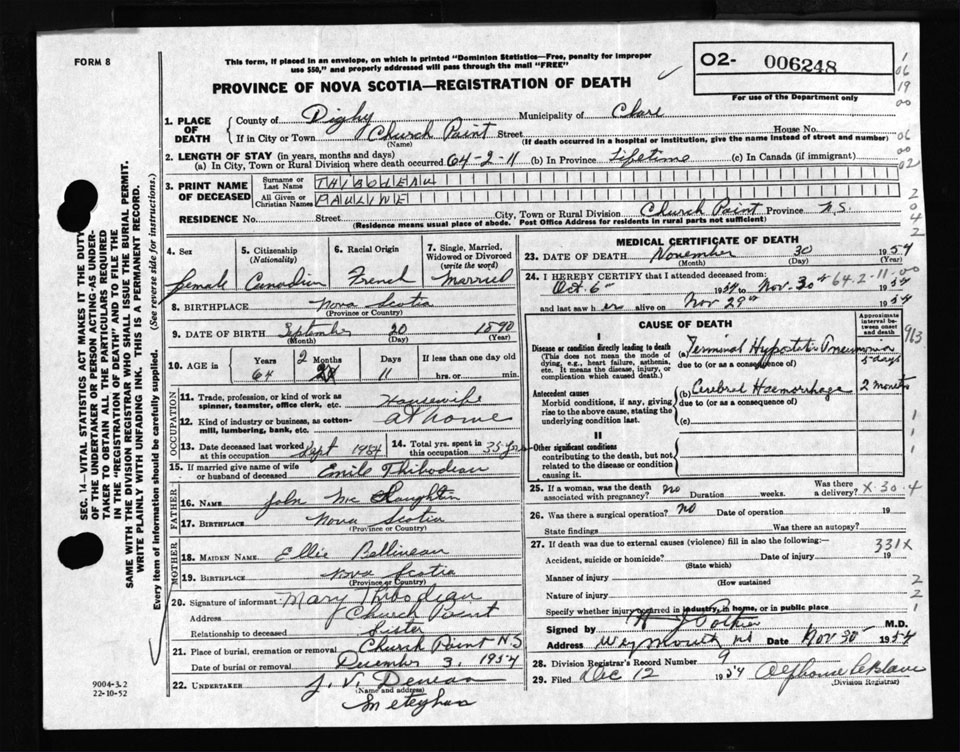 FORM 8
This form, if placed in an envelope, on which is printed "Dominion Statistics—Free, penalty for improper
use $50," and properly addressed will pass through the mail "FREE"
PROVINCE OF NOVA SCOTIA—REGISTRATION OF DEATH
O2- 006248
For use of the Department only
1. PLACE OF DEATH
County of Digby Municipality of Clare
If in City or Town Church Point Street House No.
(Name) (If death occurred in a hospital or institution, give the name instead of street and number)
2. LENGTH OF STAY (in years, months and days)
(a) In City, Town or Rural Division where death occurred 64-2-11 (b) In Province Lifetime (c) In Canada (if immigrant)
3. PRINT NAME OF DECEASED
Surname or Last Name THIBODEAU
All Given or Christian Names PAULINE
RESIDENCE No. Street City, Town or Rural Division Church Point Province N.S.
(Residence means usual place of abode. Post Office Address for residents in rural parts not sufficient)
4. Sex
Female
5. Citizenship
(Nationality)
Canadian
6. Racial Origin
French
7. Single, Married, Widowed or Divorced
(write the word)
Married
8. BIRTHPLACE Nova Scotia
(Province or Country)
9. DATE OF BIRTH September 20 1890
(Month) (Day) (Year)
10. AGE in Years Months Days If less than one day old
64 2 11 hrs. or min.
OCCUPATION
11. Trade, profession, or kind of work as
spinner, teamster, office clerk, etc. Housewife
12. Kind of industry or business, as cotton-
mill, lumbering, bank, etc. at home
13. Date deceased last worked at this occupation Sept 1954
14. Total yrs. spent in this occupation 35 yrs
15. If married give name of wife
or husband of deceased Emile Thibodeau
FATHER
16. NAME John Mc Laughlin
17. BIRTHPLACE Nova Scotia
(Province or Country)
MOTHER
18. MAIDEN NAME Ellie Bellineau
19. BIRTHPLACE Nova Scotia
(Province or Country)
20. Signature of informant Mary Thibodeau
Address Church Point
Relationship to deceased Sister
21. Place of burial, cremation or removal Church Point N.S
Date of burial or removal December 3, 1954
22. UNDERTAKER J. V.
(Name and address)
Meteghan
MEDICAL CERTIFICATE OF DEATH
23. DATE OF DEATH November 30 1954
(Month) (Day) (Year)
24. I HEREBY CERTIFY that I attended deceased from:
Oct. 6th 1954 to Nov. 30th 1954
64.2-11-00
and last saw her alive on Nov 29th 1954
CAUSE OF DEATH
Approximate interval between onset and death
I
Disease or condition directly leading to death
(This does not mean the mode of dying, e.g., heart failure, asthenia, etc. It means the disease, injury, or complication which caused death.)
(a) Terminal Hypostatic Pneumonia
5 days
due to (or as a consequence of)
Antecedent causes
Morbid conditions, if any, giving rise to the above cause, stating the underlying condition last.
(b) Cerebral Haemorrhage 2 months
due to (or as a consequence of)
(c)
II
Other significant conditions
contributing to the death, but not related to the disease or condition causing it.
25. If a woman, was the death
associated with pregnancy? no Duration weeks. Was there a delivery?
X-30-4
26. Was there a surgical operation? no Date of operation 19
State findings Was there an autopsy?
27. If death was due to external causes (violence) fill in also the following:
331X
Accident, suicide or homicide? Date of injury 19
(State which)
Manner of injury
(How sustained)
Nature of injury
Specify whether injury occurred in industry, in home, or in public place
Signed by Pothier M.D.
Address Weymouth NS Date Nov 30 1954
28. Division Registrar's Record Number 9
29. Filed Dec 12 1954 Alphonse LeBlanc
(Division Registrar)
SEC. 14—VITAL STATISTICS ACT MAKES IT THE DUTY
OF THE UNDERTAKER OR PERSON ACTING AS UNDER-
TAKER TO OBTAIN ALL THE PARTICULARS REQUIRED
IN THE "REGISTRATION OF DEATH" AND TO FILE THE
SAME WITH THE DIVISION REGISTRAR WHO SHALL ISSUE THE BURIAL PERMIT.
WRITE PLAINLY WITH UNFADING INK. THIS IS A PERMANENT RECORD.
Every item of information should be carefully supplied. (See reverse side for instructions.)
9004-3.2
22-10-52
1
06
19
00
06
00
02
2
0
4
2
963
1
1
1
2
2
1